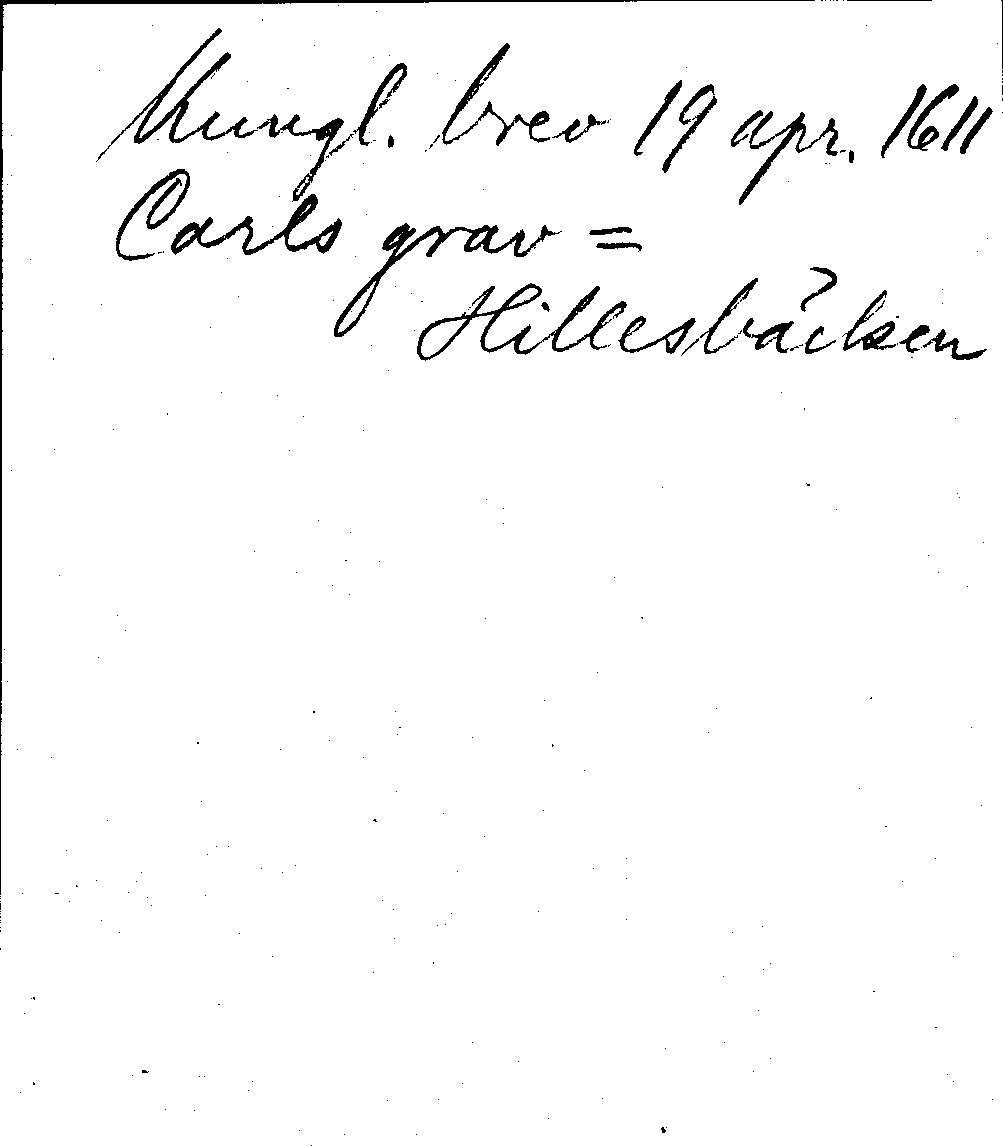 Kungl. brev 19 apr. 1611
Carls grav =
Hillesbäcken